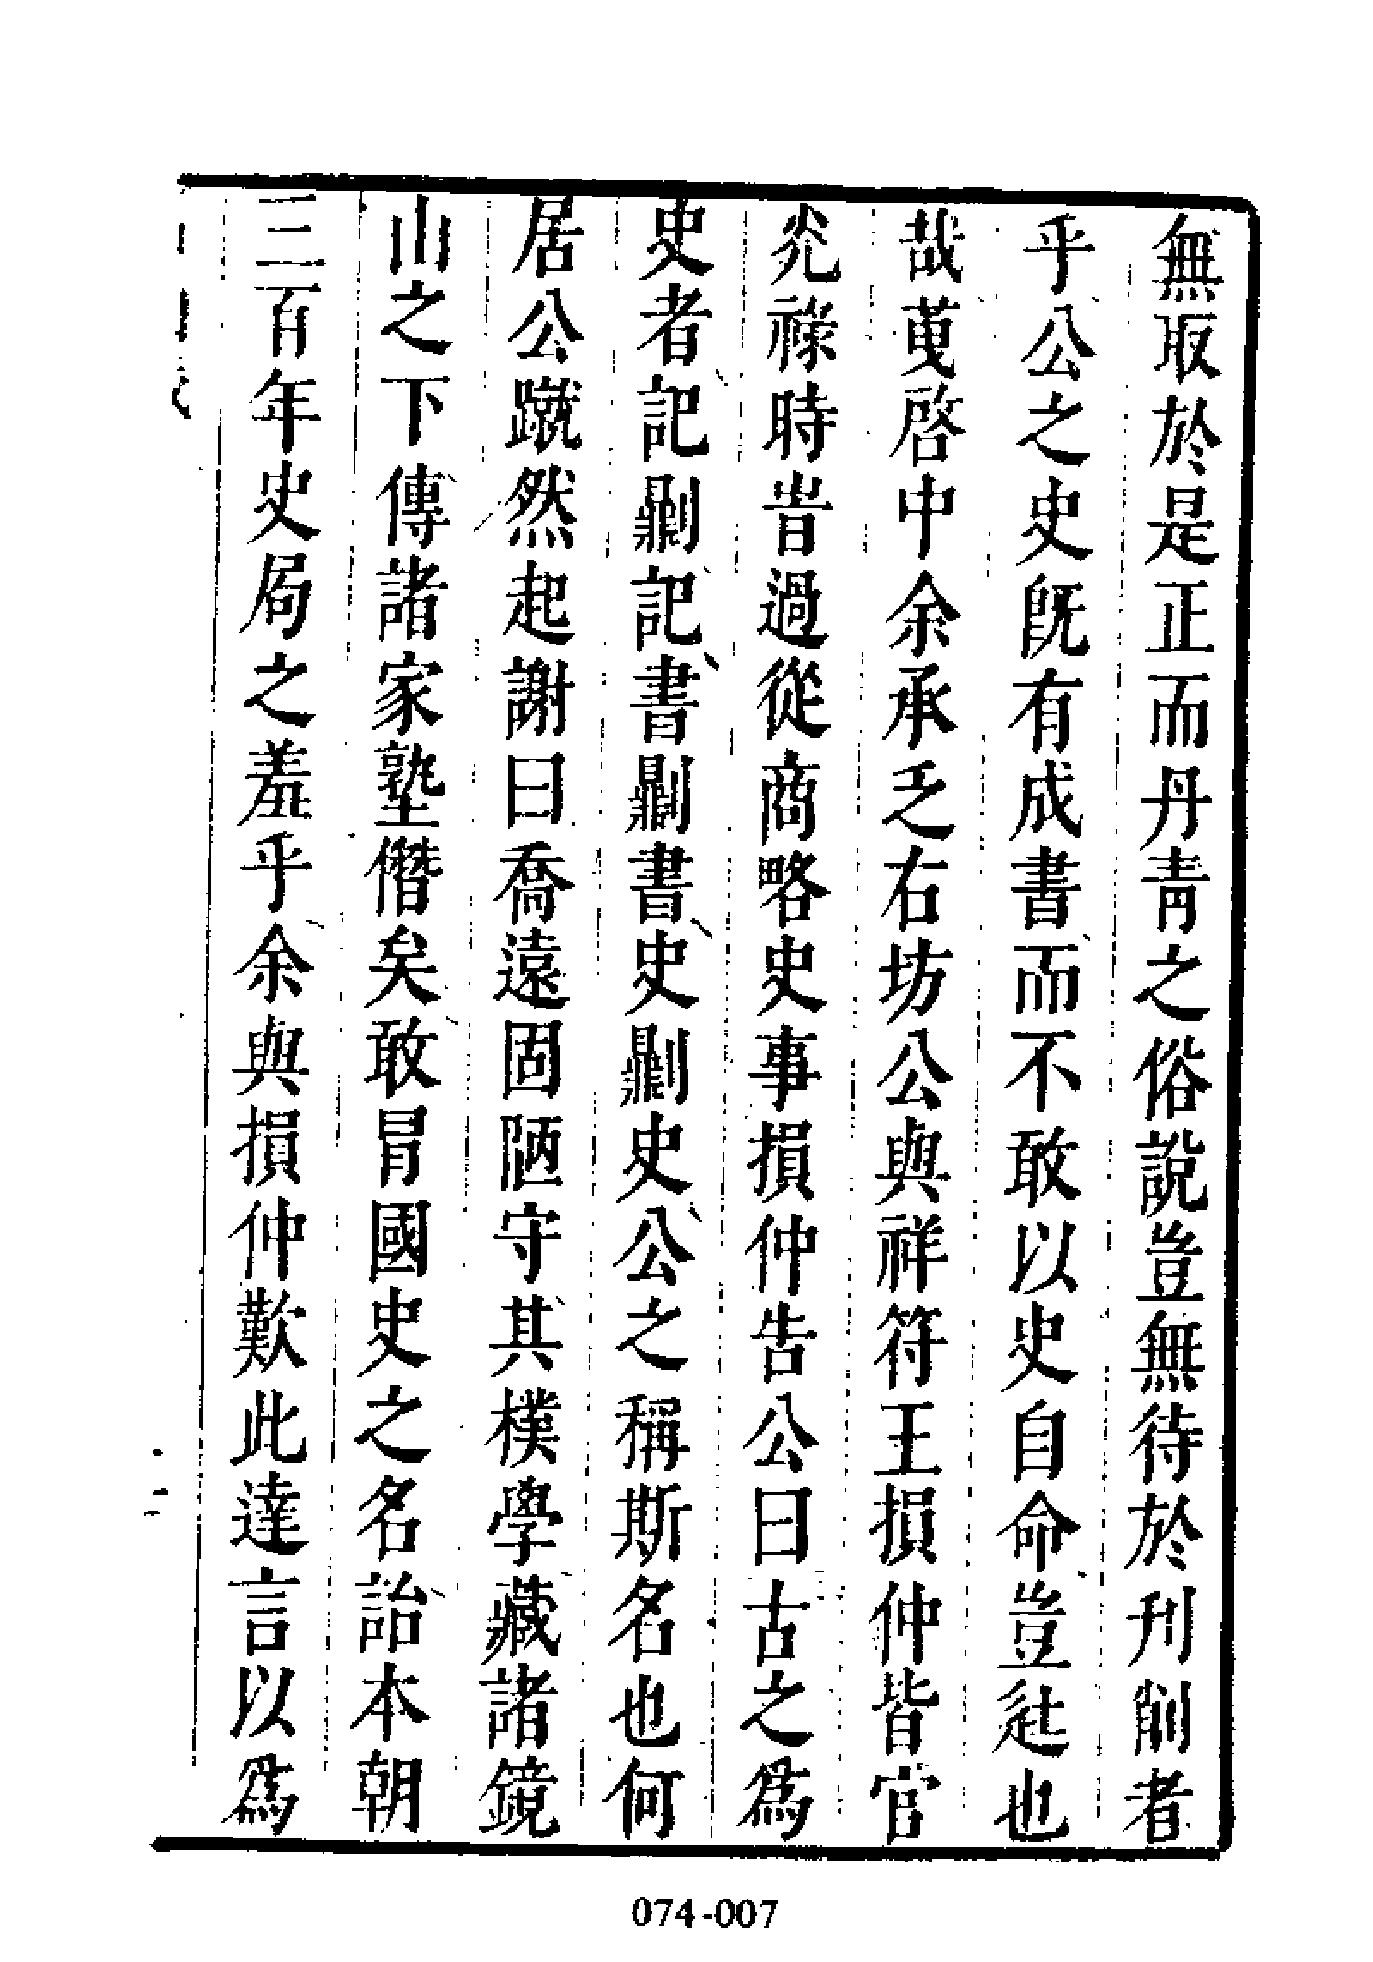 無取於是正而丹靑之俗說豈無待於刋削者
乎公之史旣有成書而不敢以史自命豈𨓏也
哉萈啓中余承乏右坊公與祥符王損仲皆官
光祿時時過從商略史事損仲告公曰古之爲
史者記劘記書劘書史劘史公之稱斯名也何
居公蹴然起謝曰喬遠固陋守其樸學藏諸鏡
山之下傳諸家塾僭矣敢冒國史之名詒本朝
三百年史局之羞乎余與損仲歎此達言以爲
074-007